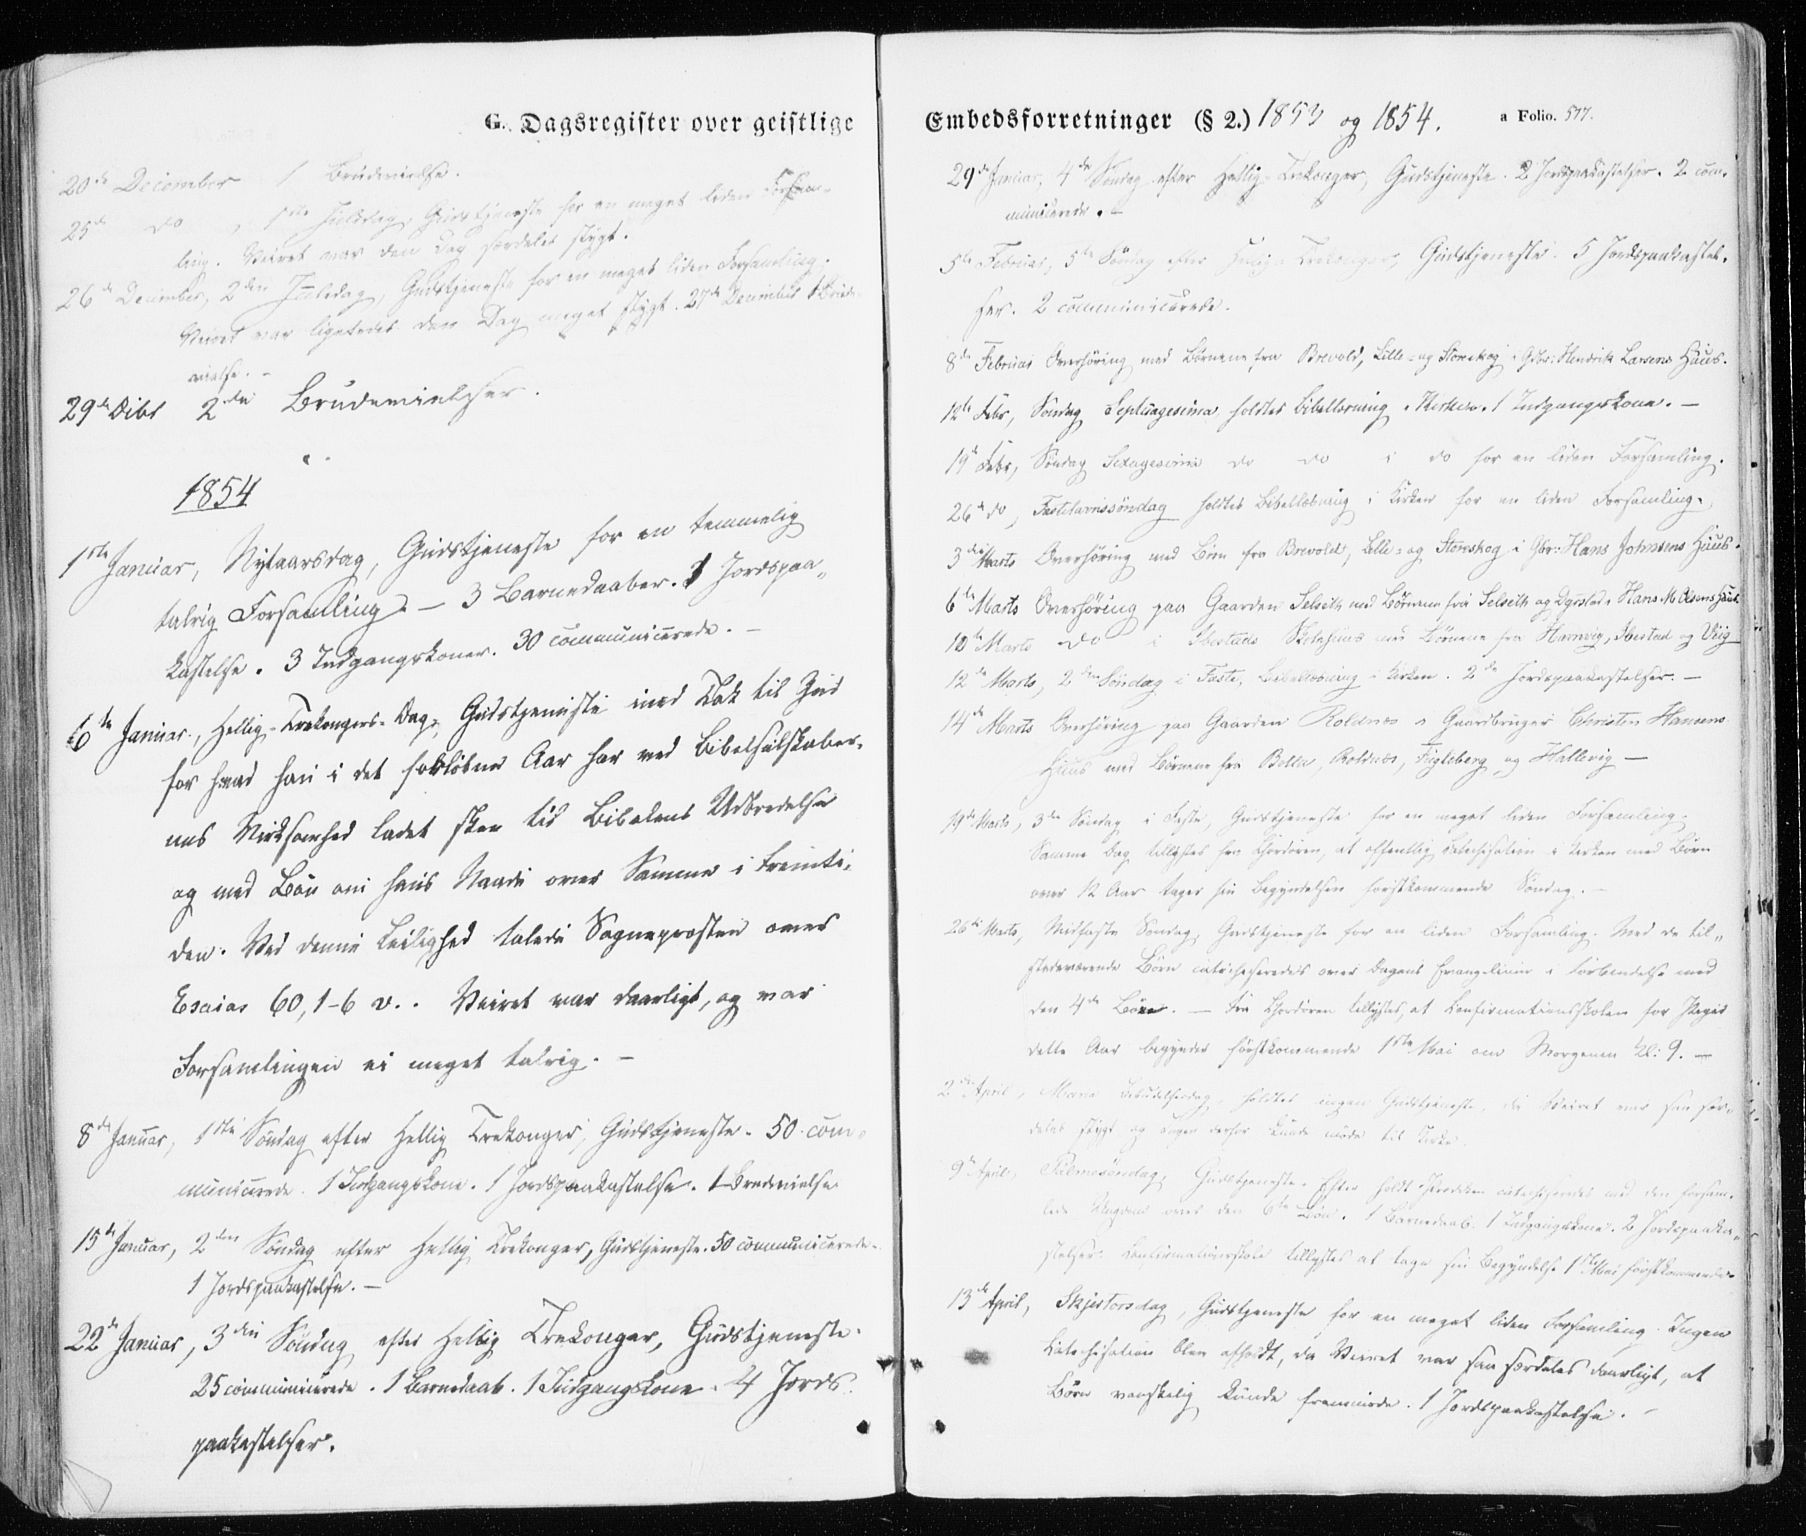 G. Dagsregister over geistlige
20de December 1 Brudevielse.
25de do, 1ste Juledag, Gudstjeneste for en meget liden Forsam-
ling. Veiret var den Dag særdeles stygt.
26de December, 2den Juledag, Gudstjeneste for en meget liden Forsamling.
Veiret var ligeledes den Dag meget stygt. 27de December 1 Brude-
vielse. -
29de Dcbr 2de Brudevielser.
1854
1ste Januar, Nytaarsdag, Gudstjeneste for en temmelig
talrig Forsamling. - 3 Barnedaaber. 1 Jordspaa-
kastelse. 3 Indgangskoner. 30 communicerede. -
6te Januar, Hellig-Trekongers-Dag, Gudstjeneste med Tak til Gud
for hvad han i det forløbne Aar har ved Bibelselskaber-
nes Virksomhed ladet skee til Bibelens Udbredelse
og med Bøn om hans Naade over Samme i Fremti-
den. Ved denne Leilighed talede Sognepræsten over
Esaias 60, 1-6 v.. Veiret var daarligt, og var
Forsamlingen ei meget talrig. -
8de Januar, 1ste Søndag efter Hellig Trekonger, Gudstjeneste. 50 com-
municerede. 1 Indgangskone. 1 Jordspaakastelse. 1 Brudevielse
15de Januar, 2den Søndag efter Hellig Trekonger, Gudstjeneste. 50 communicerede.
1 Jordspaakastelse. -
22de Januar, 3die Søndag efter Hellig Trekonger, Gudstjeneste.
25 communicerede. 1 Barnedaab. 1 Indgangskone. 4 Jords-
paakastelser.
Embedsforretninger (§ 2.) 1853 og 1854. a Folio. 577.
29de Januar, 4de Søndag efter Hellig-Trekonger, Gudstjeneste. 2 Jordspaakastelser. 2 com-
municerede. -
5te Februar, 5te Søndag efter Hellig-Trekonger, Gudstjeneste. 5 Jordspaakastel-
ser. 2 communicerede.
8de Februar Overhøring med Børnene fra Brevold, Lille- og Storskog i Gbr: Hendrik Larsens Huus.
12te Febr, Søndag Septuagesima holdtes Bibellæsning i Kirken. 1 Indgangskone. -
19de Febr, Søndag Sexagesima do do i do for en liden Forsamling.
26de do, Fastelavnssøndag holdtes Bibellæsning i Kirken for en liden Forsamling.
3die Marts Overhøring med Børn fra Brevold, Lille- og Storskog i Gbr: Hans Johnsens Huus.
6te Marts Overhøring paa Gaarden Selseth med Børnene fra Selseth og i Hans M. Olsens Huus
10de Marts do i Ibestads Skolehuus med Børnene fra Hamvig, Ibestad og Vüg
12te Marts, 2den Søndag i Faste, Bibellæsning i Kirken. 2de Jordspaakastelser. -
14de Marts Overhøring paa Gaarden Roldnæs i Gaardbruger Christen Hansens
Huus med Børnene fra Bolla, Roldnæs, Fugleberg og Hallevig -
19de Marts, 3die Søndag i Faste, Gudstjeneste for en meget liden Forsamling.
Samme Dag tillystes fra Chordøren, at offentlig Catechisation i Kirken med Børn
over 12 Aar tager sin Begyndelse førstkommende Søndag. -
26de Marts, Midfaste Søndag, Gudstjeneste for en liden Forsamling. Med de til-
stedeværende Børn catechiseredes over Dagens Evangelium i Forbindelse med
den 4de Bøn. - Fra Chordøren tillystes, at Confirmationsskolen for Piger
dette Aar begynder førstkommende 1ste Mai om Morgenen Kl: 9. -
2den April, Mariæ Bebudelsesdag, holdtes ingen Gudstjeneste, da Veiret var saa sær-
deles stygt og Ingen derfor kunde møde til Kirke.
9de April, Palmesøndag, Gudstjeneste. Efter holdt Prædiken catechiseredes med den forsam-
lede Ungdom over den 6te Bøn. 1 Barnedaab. 1 Indgangskone. 2 Jordspaaka-
stelser. Confirmationsskole tillystes at tage sin Begyndelse 1ste Mai førstkommende.
13de April, Skjertorsdag, Gudstjeneste for en meget liden Forsamling. Ingen
Catechisation blev afholdt, da Veiret var saa særdeles daarligt, at
Børn vanskelig kunde fremmøde. 1 Jordspaakastelse. -